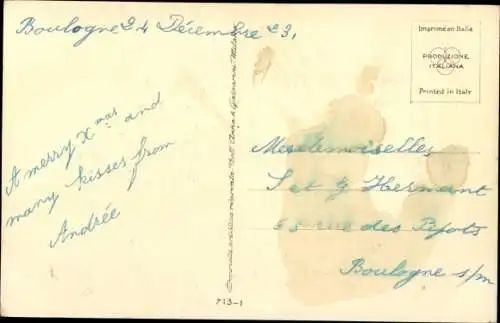 Boulogne 24 Décembre 23,
A merry Xmas and
many kisses from
Andrée
Imprimé en Italie
PRODUZIONE
ITALIANA
Printed in Italy
Mesdemoiselles,
S et G Hermant
rue des Pipots
Boulogne s/m
713-1